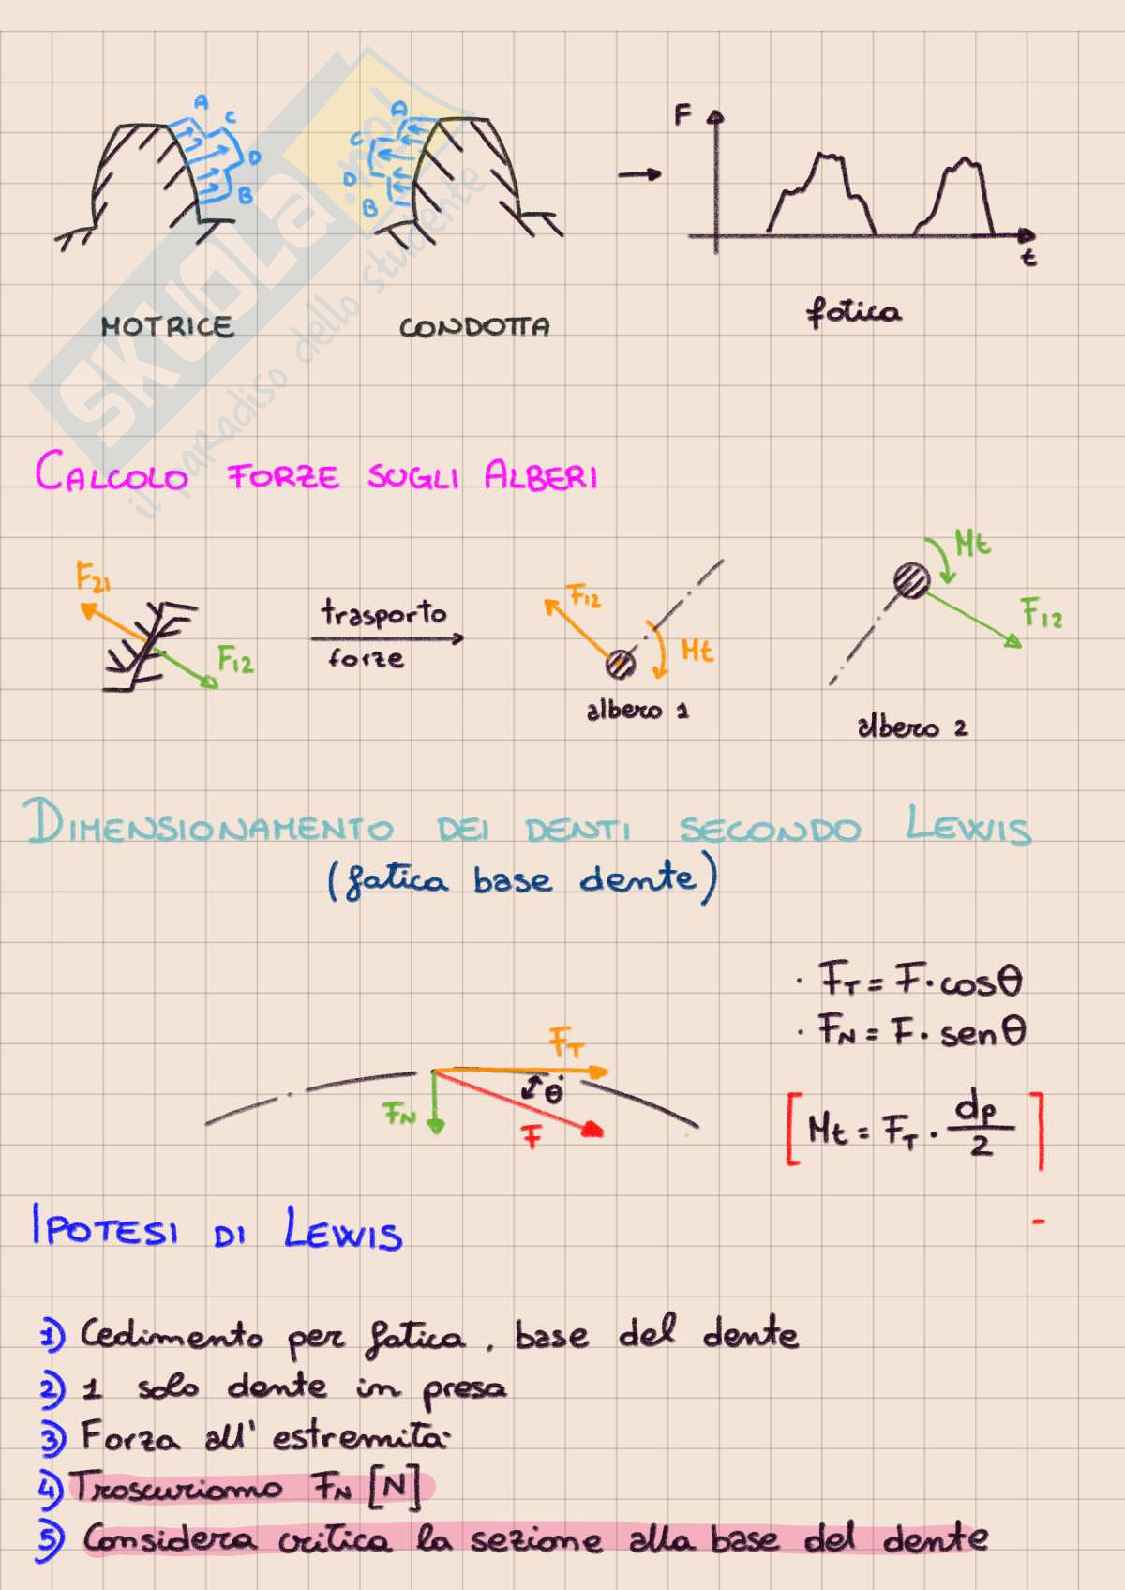 A
C
D
B
A
C
D
B
F
t
MOTRICE
CONDOTTA
fatica
SKUOLA.net
il paradiso dello studente
CALCOLO FORZE SUGLI ALBERI
F21
F12
trasporto
forze
F12
Mt
albero 1
Mt
F12
albero 2
DIMENSIONAMENTO DEI DENTI SECONDO LEWIS
(fatica base dente)
· FT = F · cosθ
· FN = F · senθ
FT
θ
FN
F
[Mt = FT · dp/2]
IPOTESI DI LEWIS
1) Cedimento per fatica, base del dente
2) 1 solo dente in presa
3) Forza all'estremità
4) Trascuriamo FN [N]
5) Considera critica la sezione alla base del dente